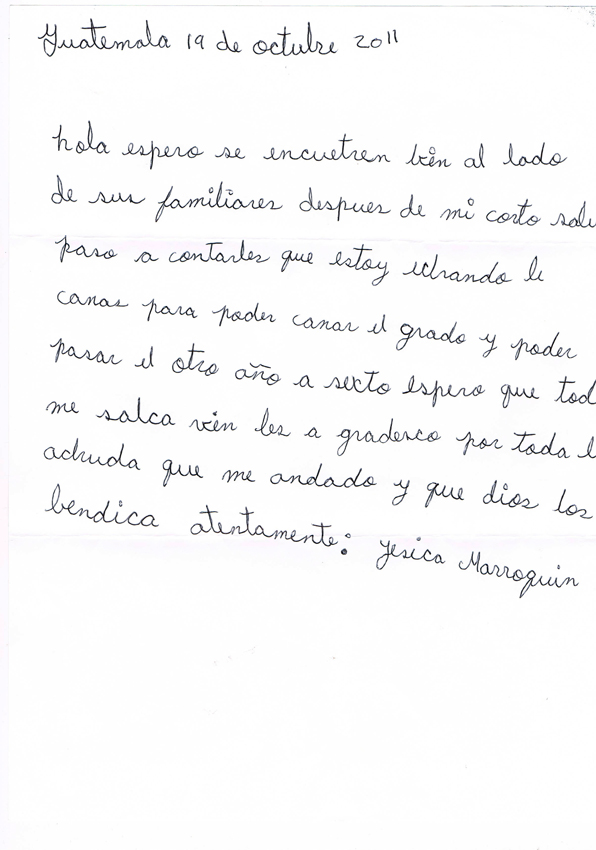 Guatemala 19 de octubre 2011
hola espero se encuetren bien al lado
de sus familiares despues de mi corto salu
paso a contarles que estoy echando le
canas para poder canar el grado y poder
pasar el otro año a sexto espero que tod
me salca vien les a gradesco por toda l
achuda que me andado y que dios los
bendica atentamente: Yesica Marroquin